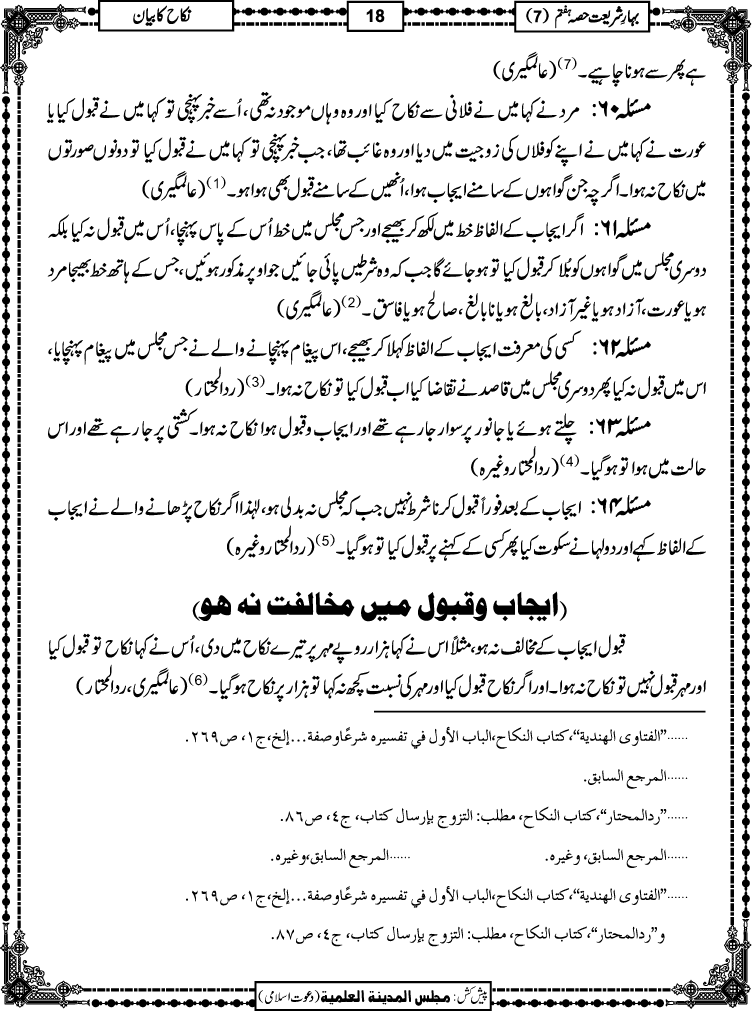 بہارِشریعت حصہ ہفتم (7)
18
نکاح کا بیان
ہے پھر سے ہونا چاہیے۔(7) (عالمگیری)
مسئلہ ۶۰: مرد نے کہا میں نے فلانی سے نکاح کیا اور وہ وہاں موجود نہ تھی، اُسے خبر پہنچی تو کہا میں نے قبول کیا یا
عورت نے کہا میں نے اپنے کو فلاں کی زوجیت میں دیا اور وہ غائب تھا، جب خبر پہنچی تو کہا میں نے قبول کیا تو دونوں صورتوں
میں نکاح نہ ہوا۔ اگرچہ جن گواہوں کے سامنے ایجاب ہوا، اُنھیں کے سامنے قبول بھی ہوا ہو۔(1) (عالمگیری)
مسئلہ ۶۱: اگر ایجاب کے الفاظ خط میں لکھ کر بھیجے اور جس مجلس میں خط اُس کے پاس پہنچا، اُس میں قبول نہ کیا بلکہ
دوسری مجلس میں گواہوں کو بُلا کر قبول کیا تو ہو جائے گا جب کہ وہ شرطیں پائی جائیں جو اوپر مذکور ہوئیں، جس کے ہاتھ خط بھیجا مرد
ہو یا عورت، آزاد ہو یا غیر آزاد، بالغ ہو یا نابالغ، صالح ہو یا فاسق۔(2) (عالمگیری)
مسئلہ ۶۲: کسی کی معرفت ایجاب کے الفاظ کہلا کر بھیجے، اس پیغام پہنچانے والے نے جس مجلس میں پیغام پہنچایا،
اس میں قبول نہ کیا پھر دوسری مجلس میں قاصد نے تقاضا کیا اب قبول کیا تو نکاح نہ ہوا۔(3) (ردالمحتار)
مسئلہ ۶۳: چلتے ہوئے یا جانور پر سوار جا رہے تھے اور ایجاب وقبول ہوا نکاح نہ ہوا۔ کشتی پر جا رہے تھے اور اس
حالت میں ہوا تو ہو گیا۔(4) (ردالمحتار وغیرہ)
مسئلہ ۶۴: ایجاب کے بعد فوراً قبول کرنا شرط نہیں جب کہ مجلس نہ بدلی ہو، لہٰذا اگر نکاح پڑھانے والے نے ایجاب
کے الفاظ کہے اور دولہا نے سکوت کیا پھر کسی کے کہنے پر قبول کیا تو ہو گیا۔(5) (ردالمحتار وغیرہ)
(ایجاب وقبول میں مخالفت نہ ہو)
قبول ایجاب کے مخالف نہ ہو، مثلاً اس نے کہا ہزار روپے مہر پر تیرے نکاح میں دی، اُس نے کہا نکاح تو قبول کیا
اور مہر قبول نہیں تو نکاح نہ ہوا۔ اور اگر نکاح قبول کیا اور مہر کی نسبت کچھ نہ کہا تو ہزار پر نکاح ہو گیا۔(6) (عالمگیری، ردالمحتار)
......"الفتاوی الهندیة"، كتاب النكاح، الباب الأول في تفسيره شرعًا وصفة...إلخ، ج١، ص٢٦٩.
......المرجع السابق.
......"ردالمحتار"، كتاب النكاح، مطلب: التزوج بإرسال كتاب، ج٤، ص٨٦.
......المرجع السابق، وغيره. ......المرجع السابق، وغيره.
......"الفتاوی الهندیة"، كتاب النكاح، الباب الأول في تفسيره شرعًا وصفة...إلخ، ج١، ص٢٦٩.
و"ردالمحتار"، كتاب النكاح، مطلب: التزوج بإرسال كتاب، ج٤، ص٨٧.
پیش کش: مجلس المدینۃ العلمیۃ (دعوت اسلامی)